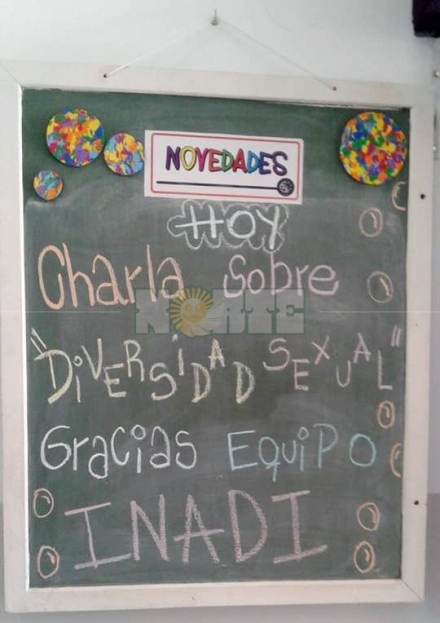 NOVEDADES
HOY
Charla Sobre
NORTE
"DiVERSiDAD SEXUAL"
Gracias EQUiPO
INADI